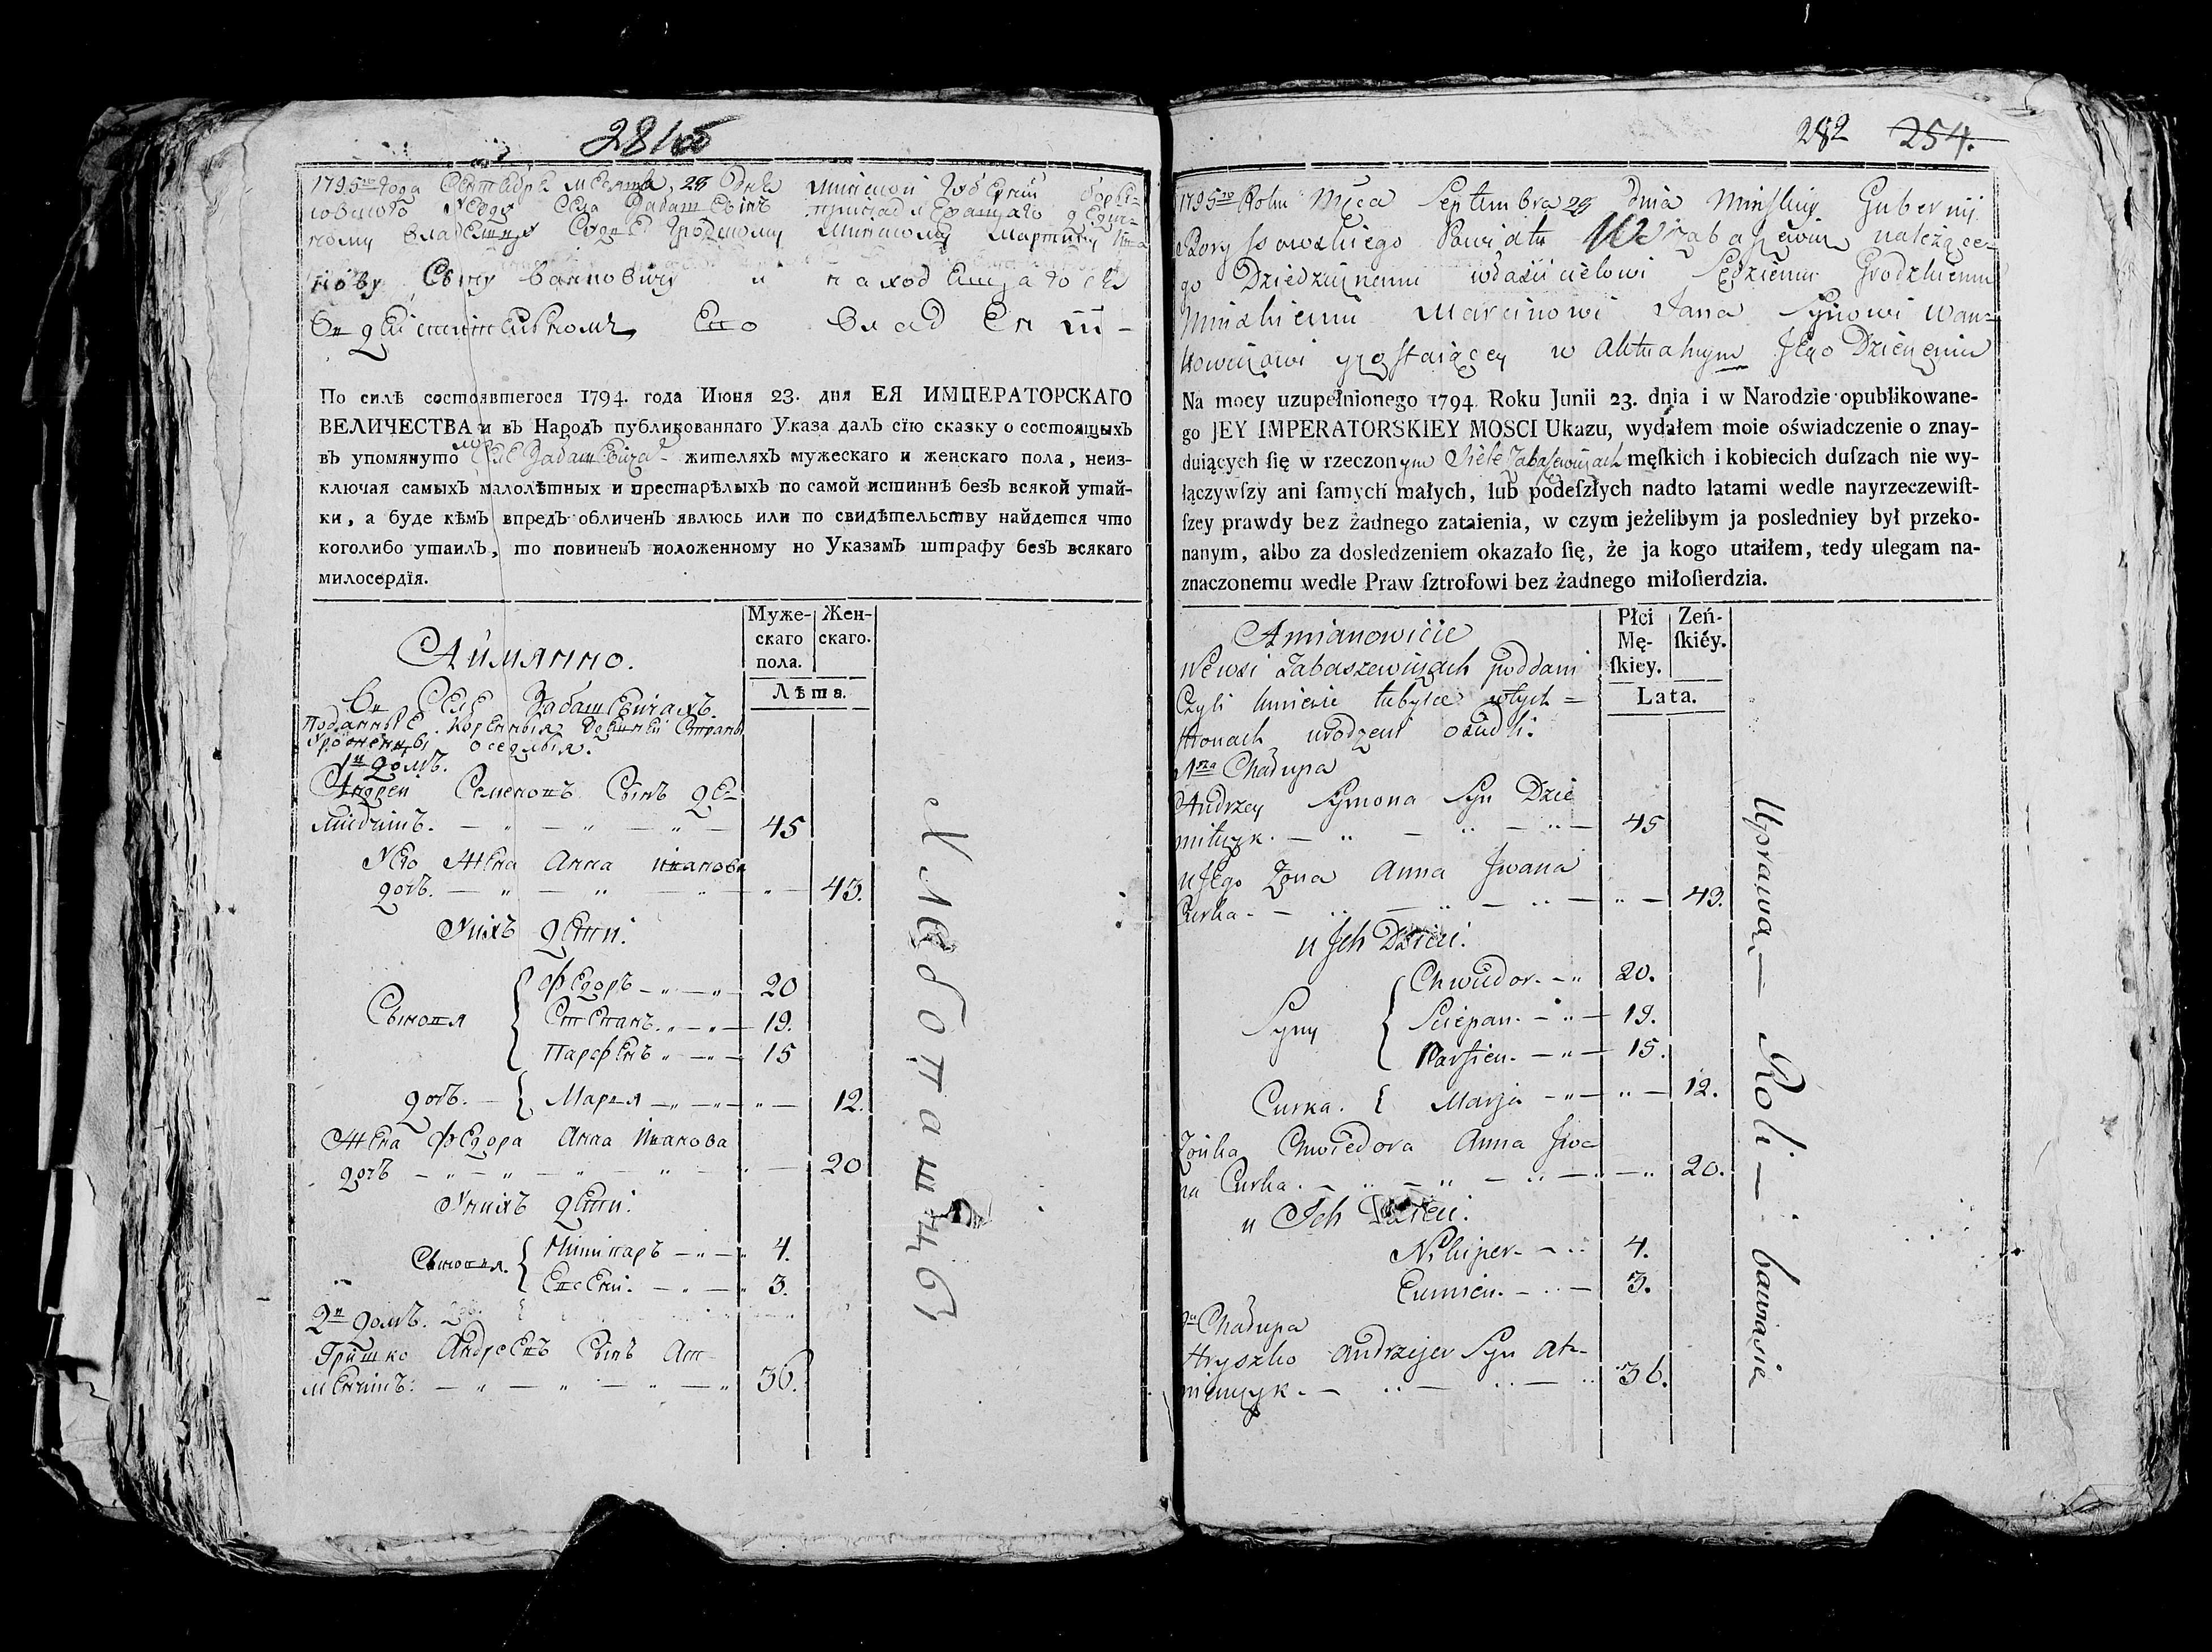 281об
1795го года Сентебра месяца, 29 дня Минской Губернии Бори-
совского
кому Владельцу Судье Гродскому Минскому Мартину Ива
нову Сыну Ваньковичу и находящаго ся
Въ действительномъ Его Владении
По силѣ состоявшегося 1794. года Июня 23. дня ЕЯ ИМПЕРАТОРСКАГО
ВЕЛИЧЕСТВА и въ Народъ публикованнаго Указа далъ сїю сказку о состоящыхъ
въ упомянуто мъ Селе Забашевичахъ жителяхъ мужескаго и женскаго пола, неиз-
ключая самыхъ малолѣтныхъ и престарѣлыхъ по самой истиннѣ безъ всякой утай-
ки, а буде кѣмъ впредъ обличенъ явлюсь или по свидѣтельству найдется что
коголибо утаилъ, то повиненъ положенному по Указамъ штрафу безъ всякаго
милосердїя.
Муже-
скаго
пола.
Жен-
скаго.
Лѣта.
Аймянно.
Въ Селе Забашевичахъ.
Подданные Коренныя
оседлыя.
1й домъ.
Андрей Семеновъ Сынъ Де-
митчикъ. 45
Уего Жена Анна Иванова
дочь. 43.
Унихъ дети.
Сыновя { Федоръ 20
Степанъ. 19.
Парфенъ 15
дочь. { Маръя 12.
Жена Федора Анна Иванова
дочь 20
Унихъ дети.
Сыновя. { Никипаръ 4.
Евсей. 3.
2й домъ.
Гришко Андреевъ Сынъ Ат-
меничикъ: 36.
Хлебопашество
282 254.
1795go Roku Mca Septembra 29 dnia Minskiey Gubernij
Borysowskiego Powiatu Zabaszewicz należące-
go Dziedzicznemu właścicielowi Sędziemu Grodzkiemu
Minskiemu Marcinowi Jana Synowi Wań-
kowiczowi y zostaiącey w Aktualnym Jego Dzierżeniu
Na mocy uzupełnionego 1794 Roku Junii 23. dnia i w Narodzie opublikowane-
go JEY IMPERATORSKIEY MOSCI Ukazu, wydałem moie oświadczenie o znay-
duiących ſię w rzeczonym Siele Zabaszewiczach męſkich i kobiecich duſzach nie wy-
łączywſzy ani ſamych małych, lub podeſzłych nadto latami wedle nayrzeczewiſt-
ſzey prawdy bez żadnego zataienia, w czym jeżelibym ja posledniey był przeko-
nanym, albo za dosledzeniem okazało ſię, że ja kogo utaiłem, tedy ulegam na-
znaczonemu wedle Praw ſztrofowi bez żadnego miłoſierdzia.
Płci
Mę-
ſkiey.
Zeń-
ſkiéy.
Lata.
Amianowicie
We wsi Zabaszewiczach poddani
Czyli kmiecie tubylce w tych =
stronach urodzeni osiadli.
1sza Chałupa
Andrzey Symona Syn Dzie
mitczyk. 45
u Jego Zona Anna Jwana
Curka. 43.
u Jch Dzieci.
Syny { Chwiedor. 20.
Sciepan. 19.
Parfien. 15.
Curka. { Marja 12.
Zonka Chwiedora Anna Jwa-
na Curka. 20.
u Jch Dzieci.
Nikiper. 4.
3.
2ga Chałupa
Hryszko Andrzejew Syn At-
mienczyk. 36.
Uprawa Roli bawiasie